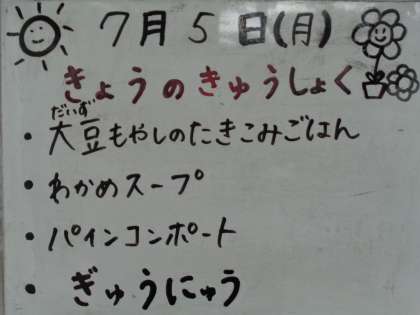 7月5日(月)
きょうのきゅうしょく
だいず
・大豆もやしのたきこみごはん
・わかめスープ
・パインコンポート
・ぎゅうにゅう